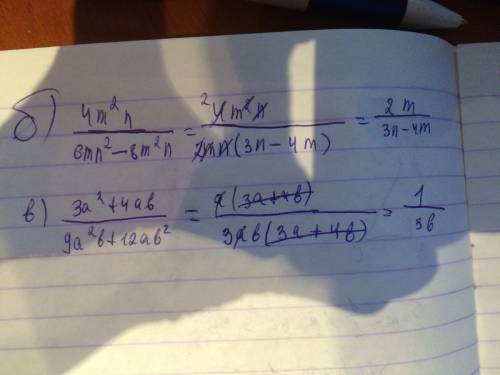 б) 4m²n / 6mn²-8m²n = ²4m²n / 2mn(3n-4m) = 2m / 3n-4m
в) 3a²+4ab / 9a²b+12ab² = a(3a+4b) / 3ab(3a+4b) = 1 / 3b